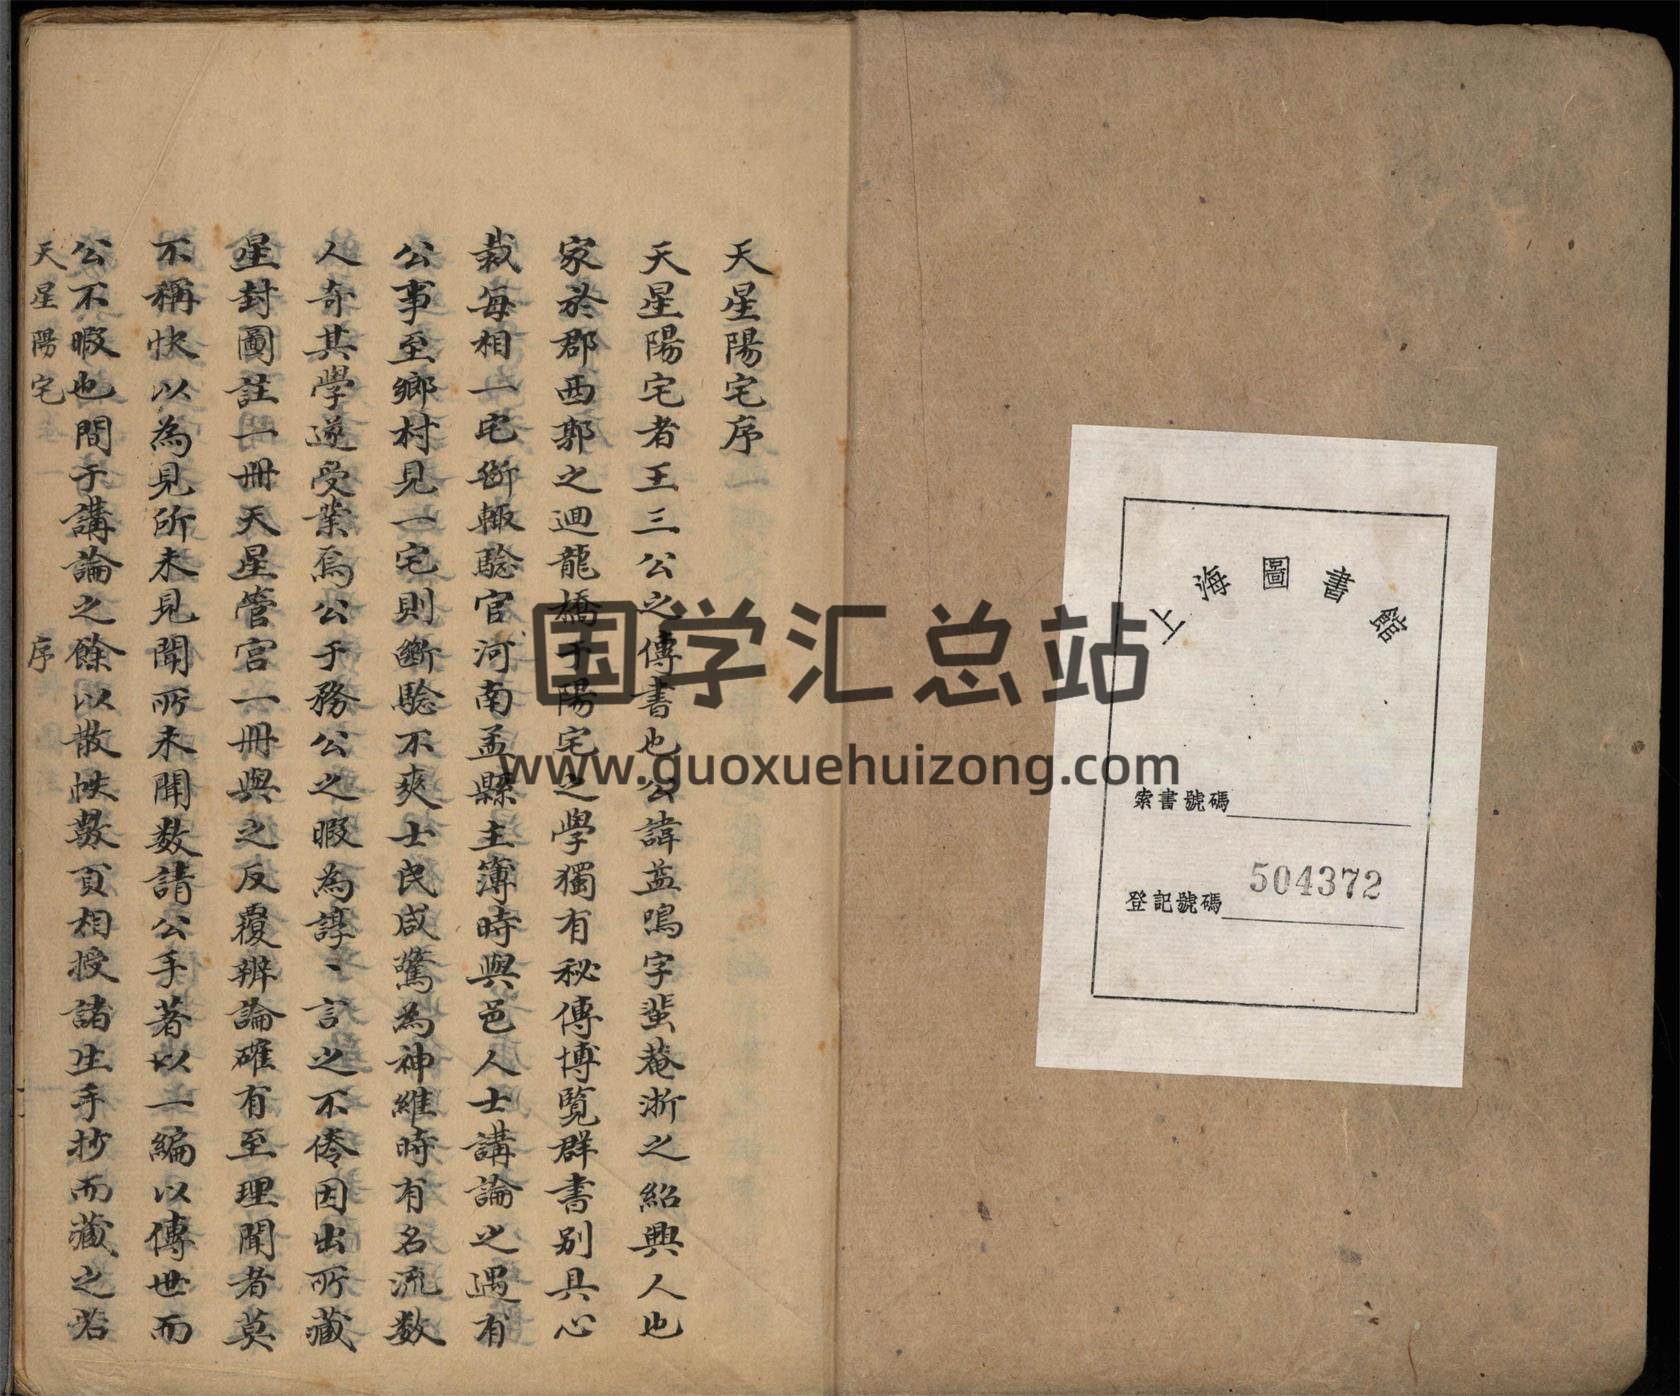 天星陽宅序
天星陽宅者王三公之傳書也公諱盖鳴字蜚菴浙之紹興人也
家於郡西郭之迴龍橋于陽宅之學獨有秘傳博覽群書別具心
裁每相一宅斷輙騐官河南孟縣主簿時與邑人士講論之遇有
公事至鄉村見一宅則斷騐不爽士民咸驚為神維時有名流数
人奇其學遂受業焉公于務公之暇為諄、言之不倦因出所藏
星封圖註一冊天星管宫一冊與之反覆辨論確有至理聞者莫
不稱快以為見所未見聞所未聞数請公手著以一編以傳世而
公不暇也間于講論之餘以散帙数頁相授諸生手抄而藏之若
天星陽宅
序
上海圖書館
索書號碼
登記號碼
504372
国学汇总站
www.guoxuehuizong.com